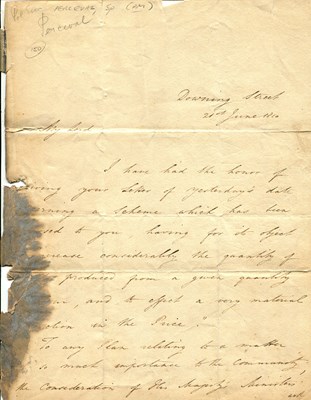 Perceval
Downing Street
June
My Lord
I have had the honor of
your Letter of yesterday's date
a Scheme which has been
to you having for its object
considerably the quantity of
produced from a given quantity
and to effect a very material
in the Price.
To any Plan relating to a matter
so much importance to the Community,
the Consideration of His Majesty's Ministers